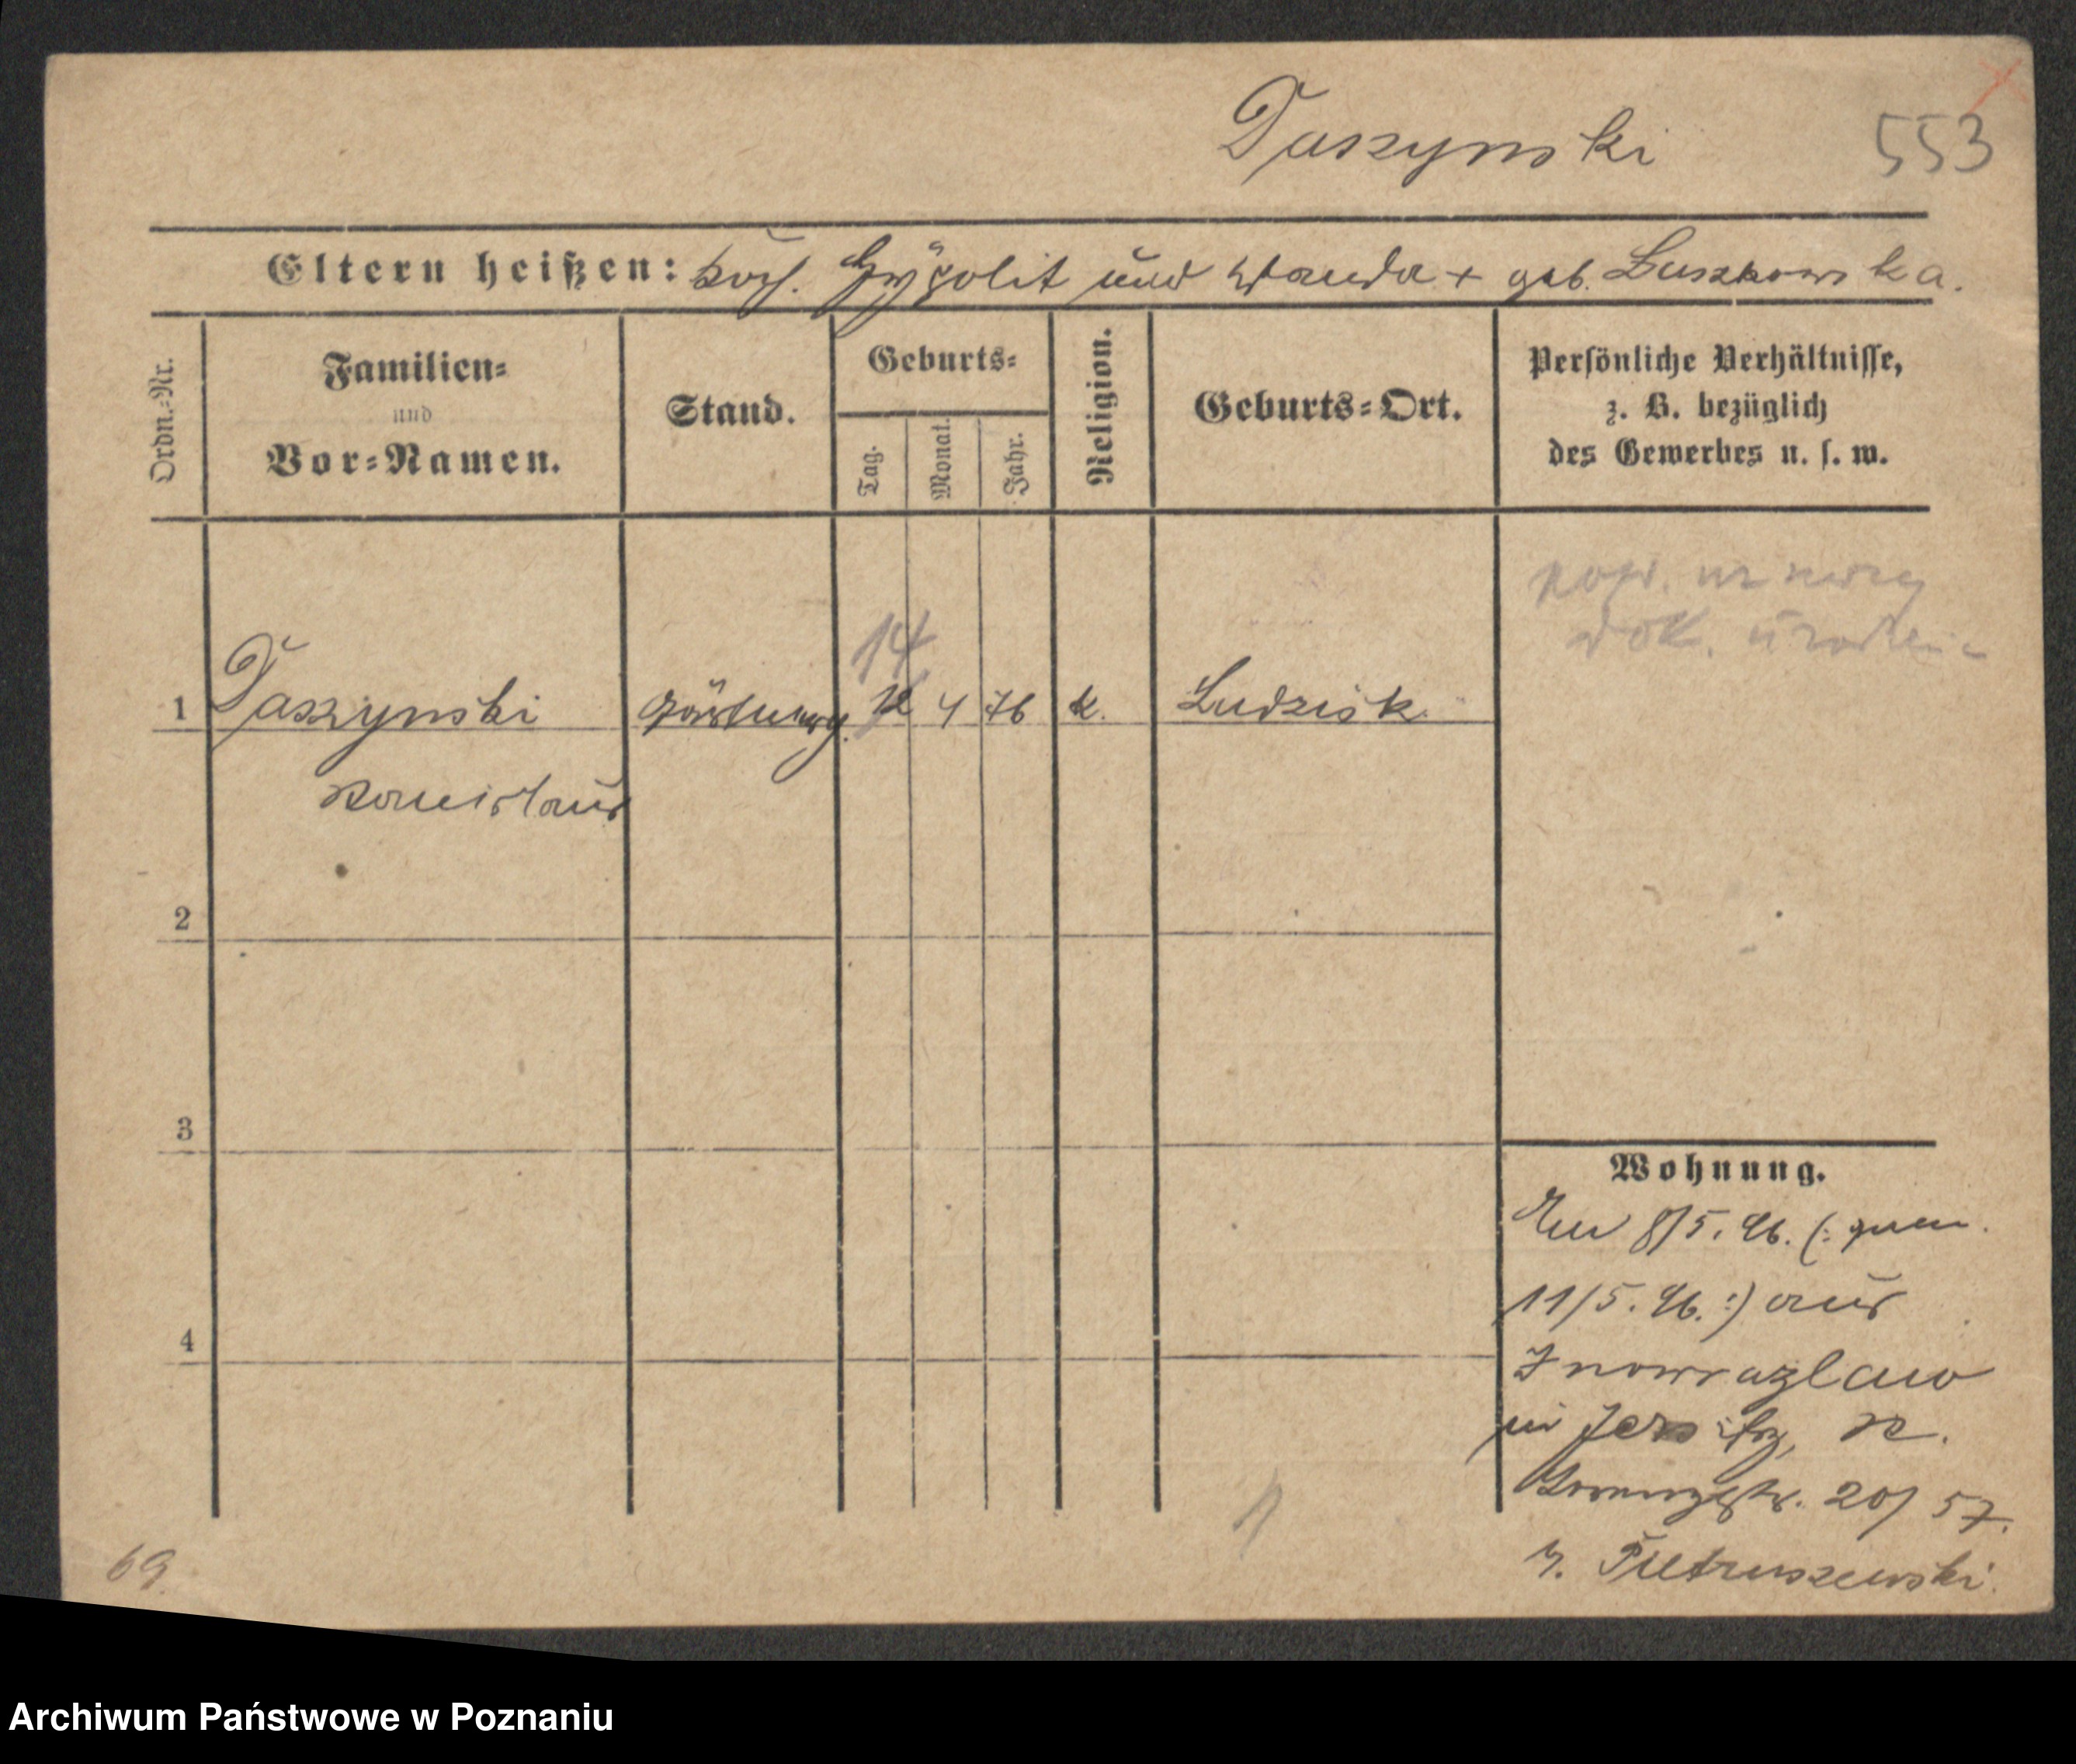 Daszynski 553
Eltern heißen: Hÿpolit und Wanda + geb. Luszkowska.
Ordn.=Nr.
Familien=
und
Vor=Namen.
Stand.
Geburts=
Tag.
Monat.
Jahr.
Religion.
Geburts=Ort.
Persönliche Verhältnisse,
z. B. bezüglich
des Gewerbes u. s. w.
dok.
14
1 Daszynski 12 4 76 k. Ludzisk
Stanislaus
2
3
4
Wohnung.
8/5. 96. (: gem.
11/5. 96. :) aus
Inowrazlaw
in Jersitz,
20/57.
Pietruszewski.
69.
Archiwum Państwowe w Poznaniu